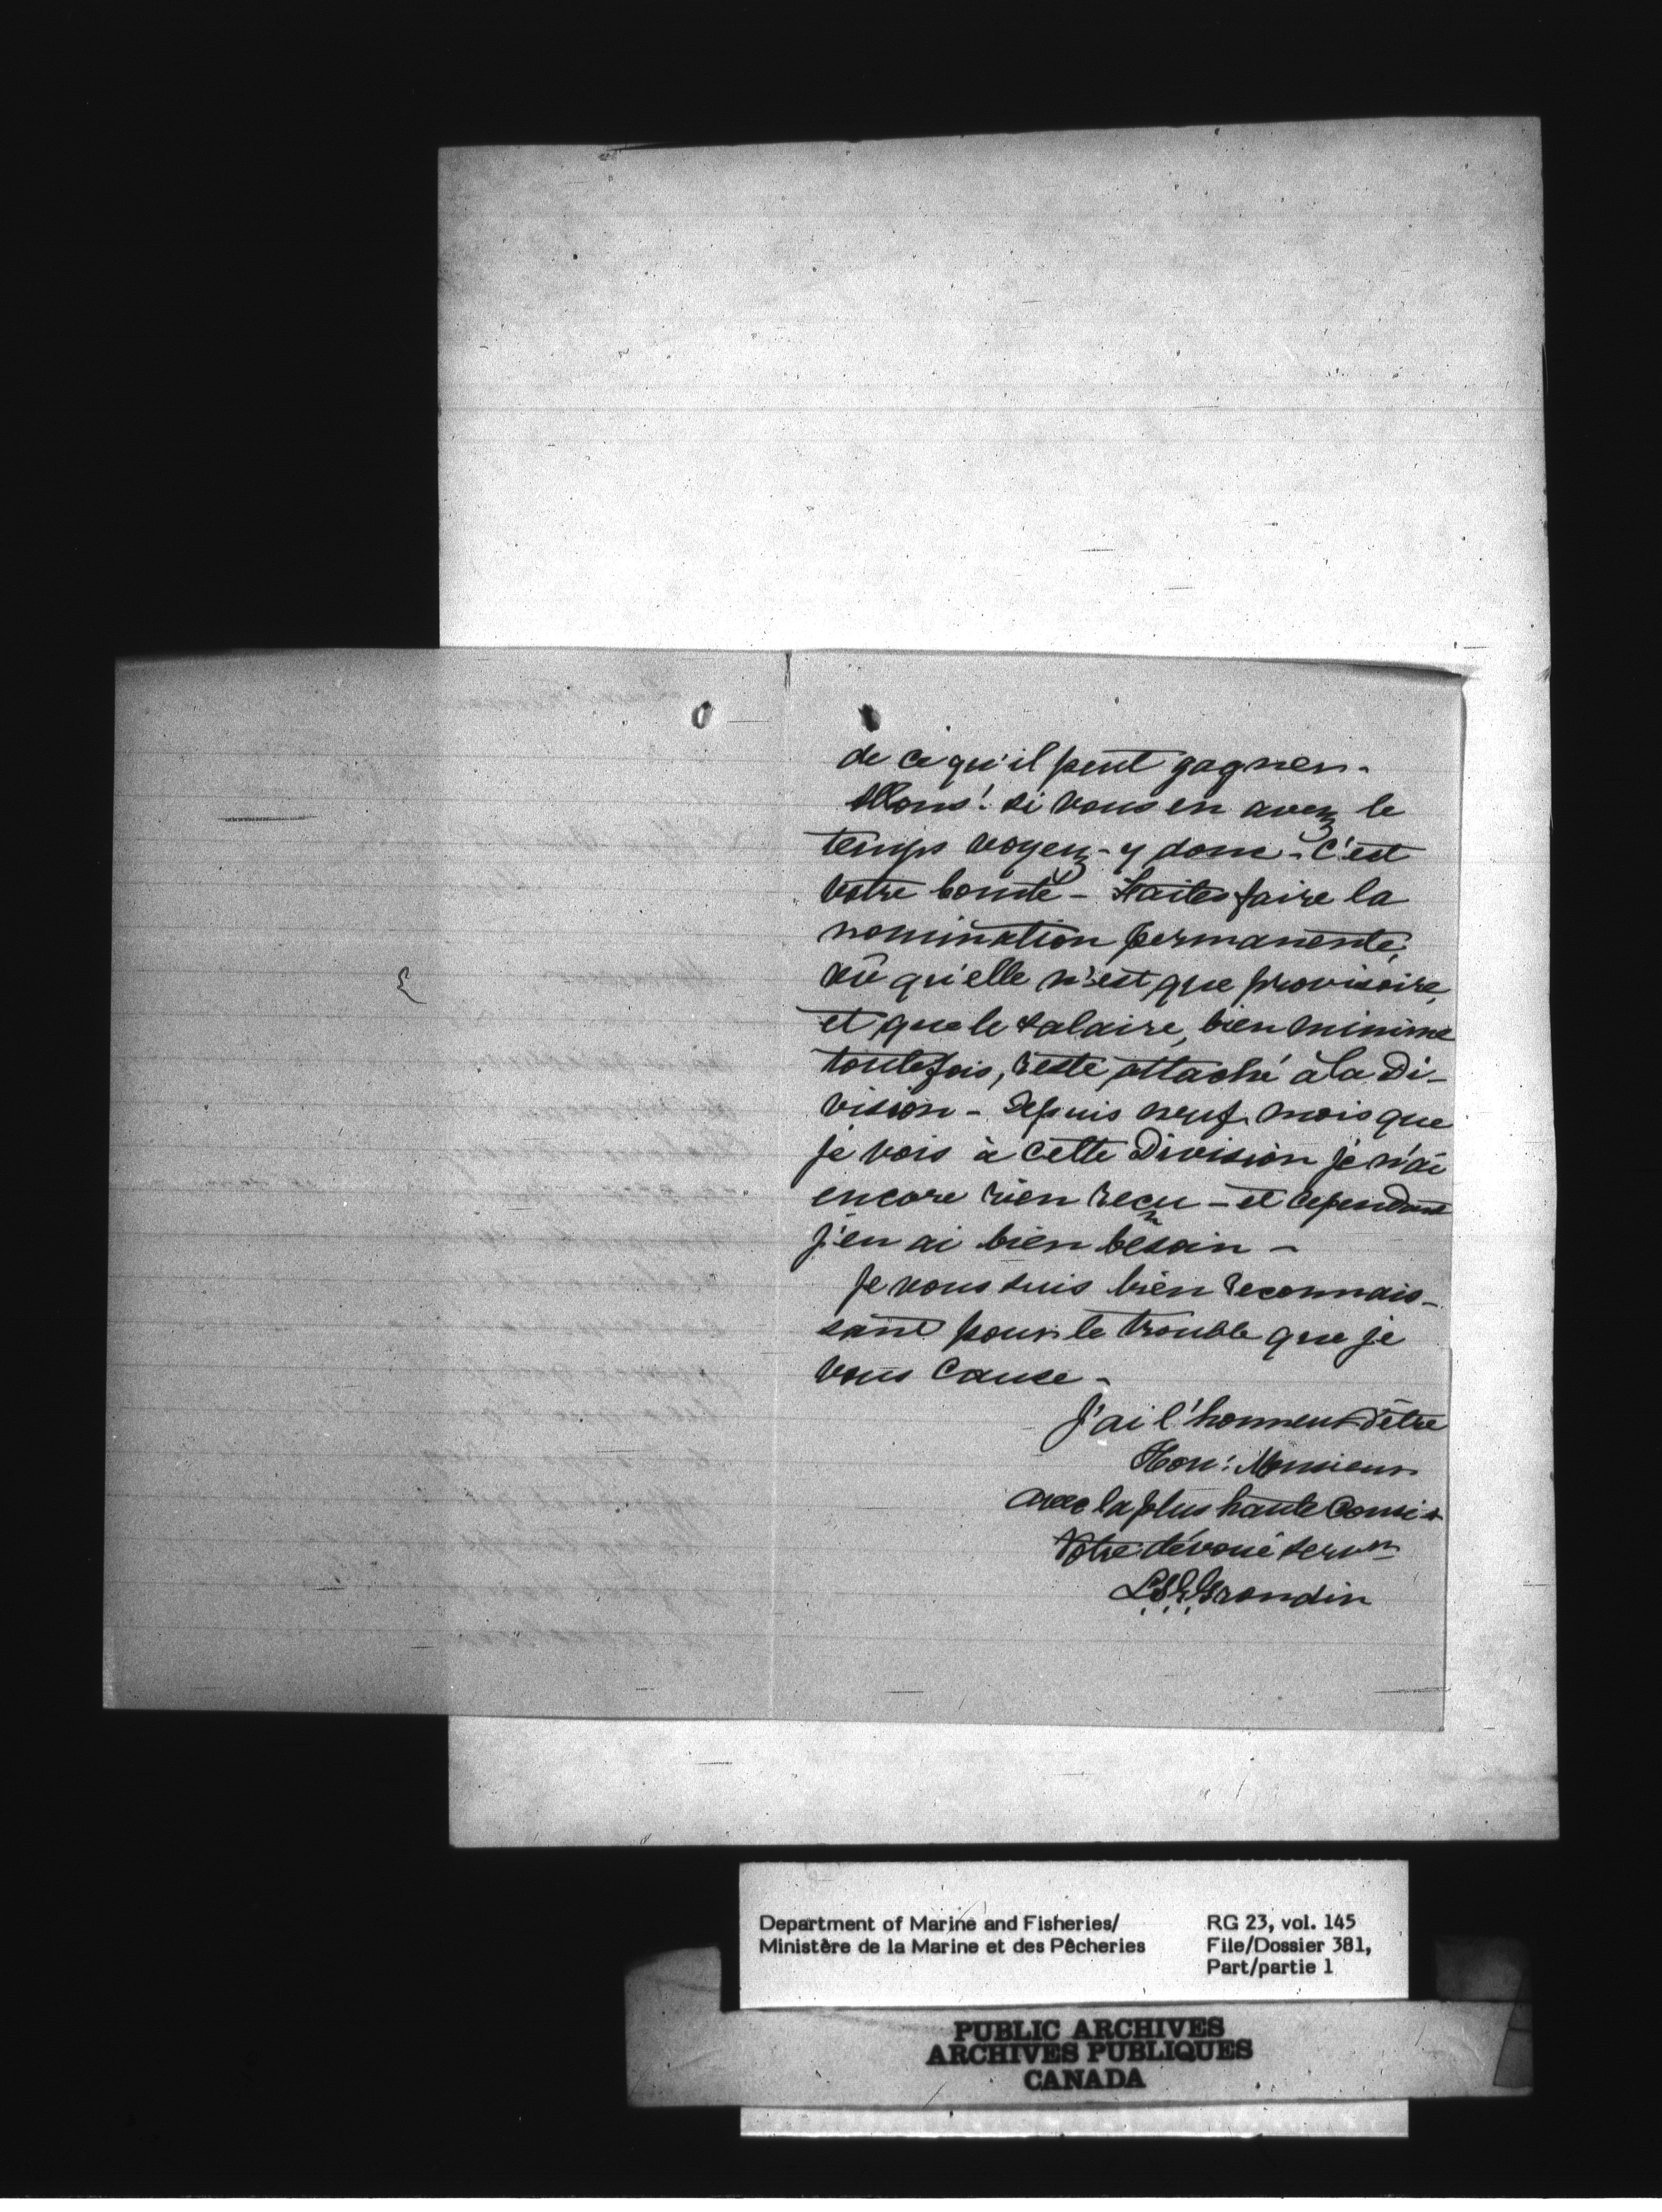 de ce qu'il peut gagner -
Allons! si vous en avez le
temps voyez-y donc - C'est
votre comté - Faites faire la
nomination permanente,
vû qu'elle n'est que provisoire,
et que le salaire, bien minime
toutefois, reste attaché à la Di-
vision - Depuis neuf mois que
je vois à cette Division je n'ai
encore rien reçu - et cependant
j'en ai bien besoin -
Je vous suis bien reconnais-
sant pour le trouble que je
vous cause -
J'ai l'honneur d'être
Hon: Monsieur
avec la plus haute Consi
Votre dévoué
Grondin
Department of Marine and Fisheries/
Ministère de la Marine et des Pêcheries
RG 23, vol. 145
File/Dossier 381,
Part/partie 1
PUBLIC ARCHIVES
ARCHIVES PUBLIQUES
CANADA